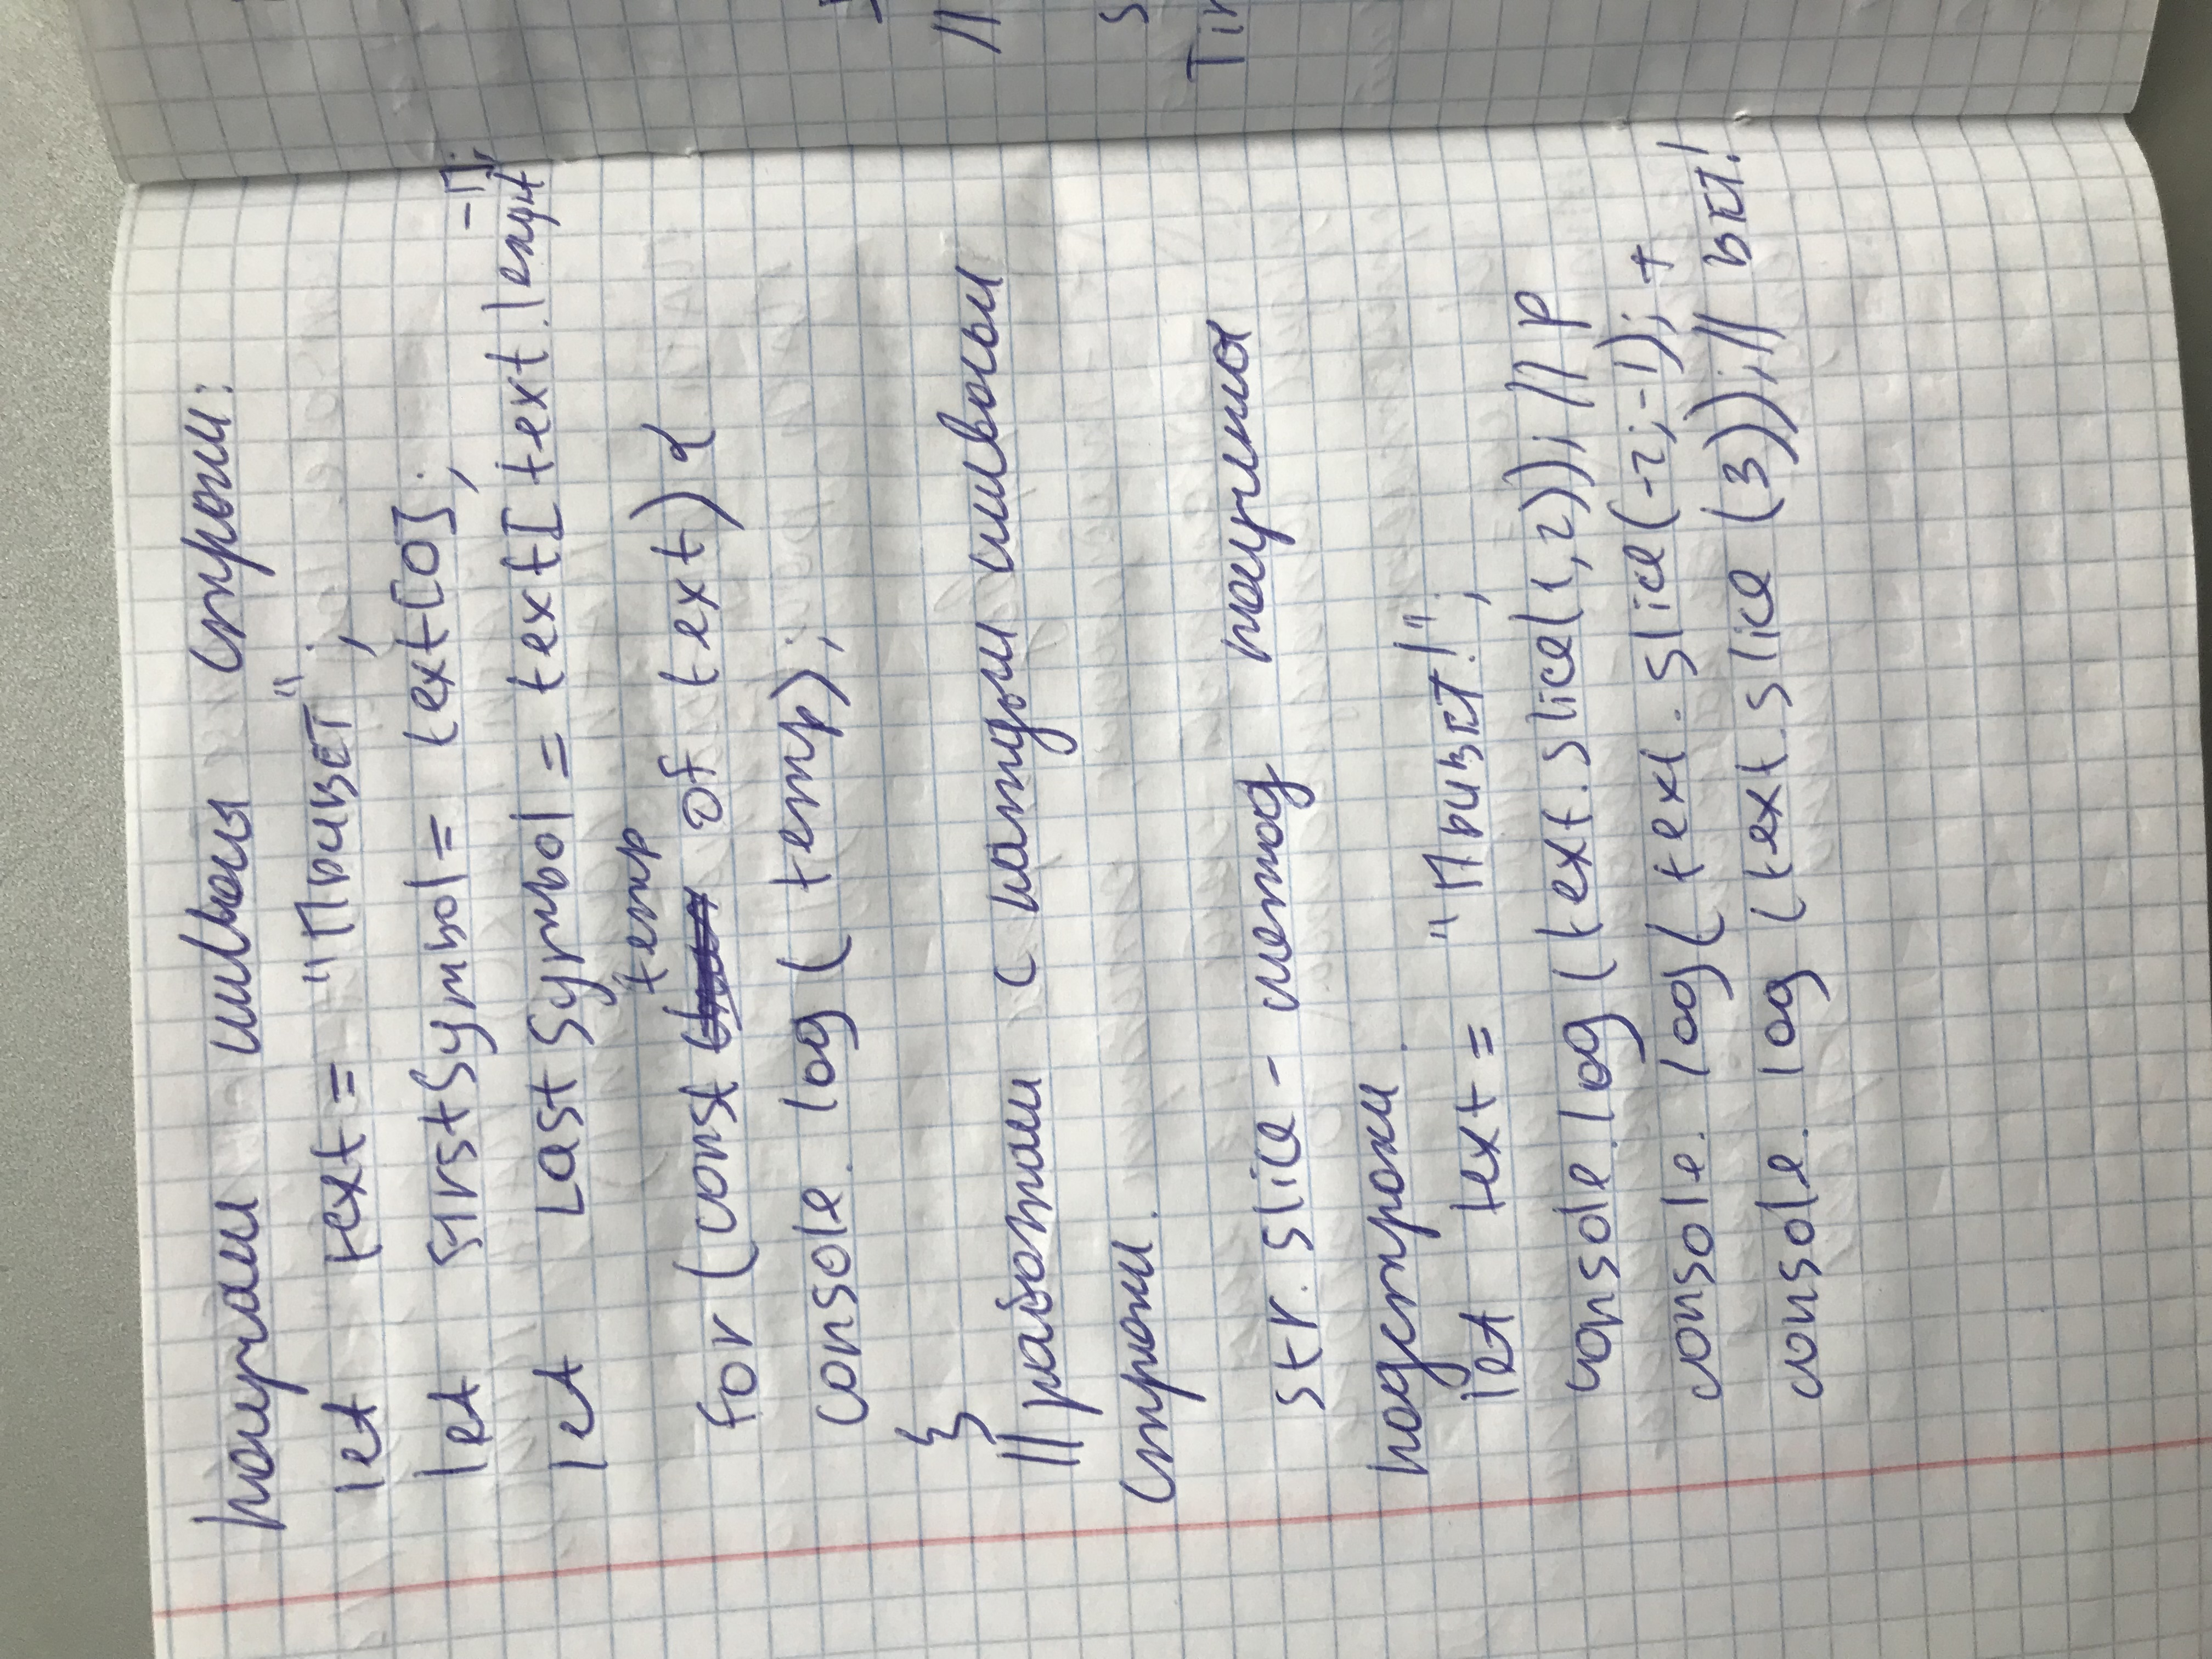 получаем символы строки:
let text = "Привет";
let firstSymbol = text[0];
let LastSymbol = text[text.lenght-1];
for (const temp of text) {
console.log(temp);
}
//работаем с каждым символом
строки.
str.slice - метод получения
подстроки.
let text = "Привет!";
console.log(text.slice(1,2)); // р
console.log(text.slice(-2;-1); т
console.log(text.slice(3)); // вет!
//
s
Tir